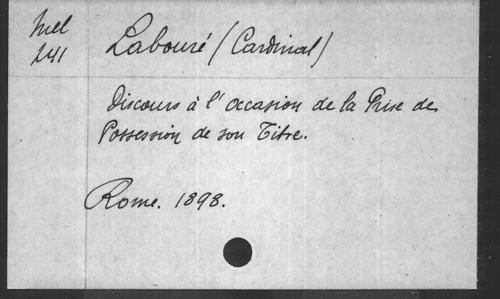 Mel
241
Labouré (Cardinal)
Discours à l'occasion de la Prise de
Possession de son Titre.
Rome. 1898.